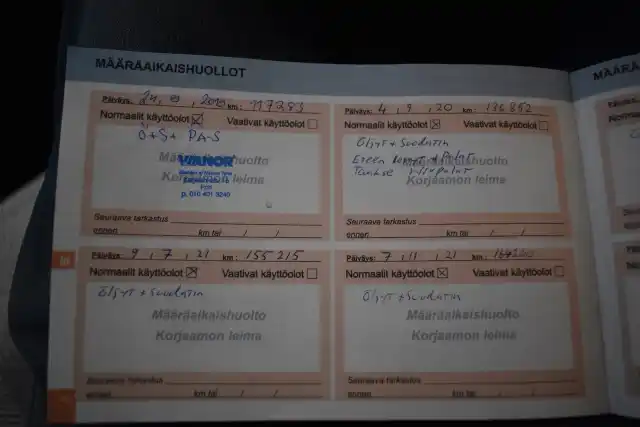 MÄÄRÄAIKAISHUOLLOT
MÄÄRÄ
Päiväys: 24, 8, 2018 km: 117283
Normaalit käyttöolot Vaativat käyttöolot
Ö+S+ PA-S
Määräaikaishuolto
VIANOR
Korjaamon leima
p. 010 401 3240
Seuraava tarkastus
ennen km tai / /
Päiväys: 4, 9, 20 km: 136852
Normaalit käyttöolot Vaativat käyttöolot
Öljyt + Suodatin
Eteen + Palat
Taakse
Määräaikaishuolto
Korjaamon leima
Seuraava tarkastus
ennen km tai / /
Päiväys: 9, 7, 21 km: 155215
Normaalit käyttöolot Vaativat käyttöolot
Öljyt + Suodatin
Määräaikaishuolto
Korjaamon leima
Seuraava tarkastus
ennen km tai / /
Päiväys: 7, 11, 21 km:
Normaalit käyttöolot Vaativat käyttöolot
Öljyt + Suodatin
Määräaikaishuolto
Korjaamon leima
Seuraava tarkastus
ennen km tai / /